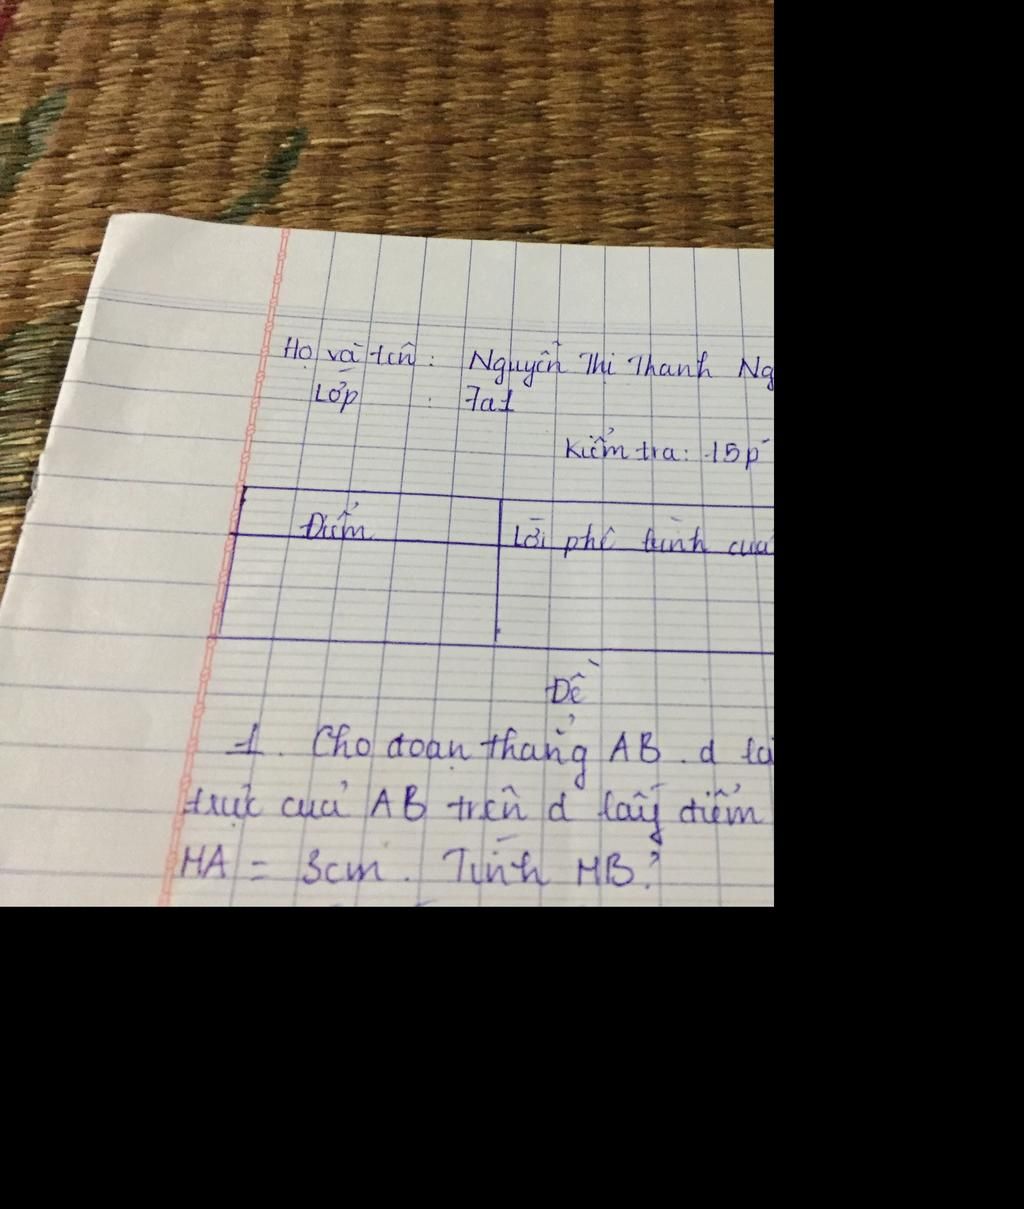 Họ và tên : Nguyễn Thị Thanh
Lớp : 7a1
Kiểm tra: 15p
Điểm
Lời phê bình của
Đề
1. Cho đoạn thẳng AB. d
trực của AB trên d lấy điểm
MA = 3cm. Tính MB?